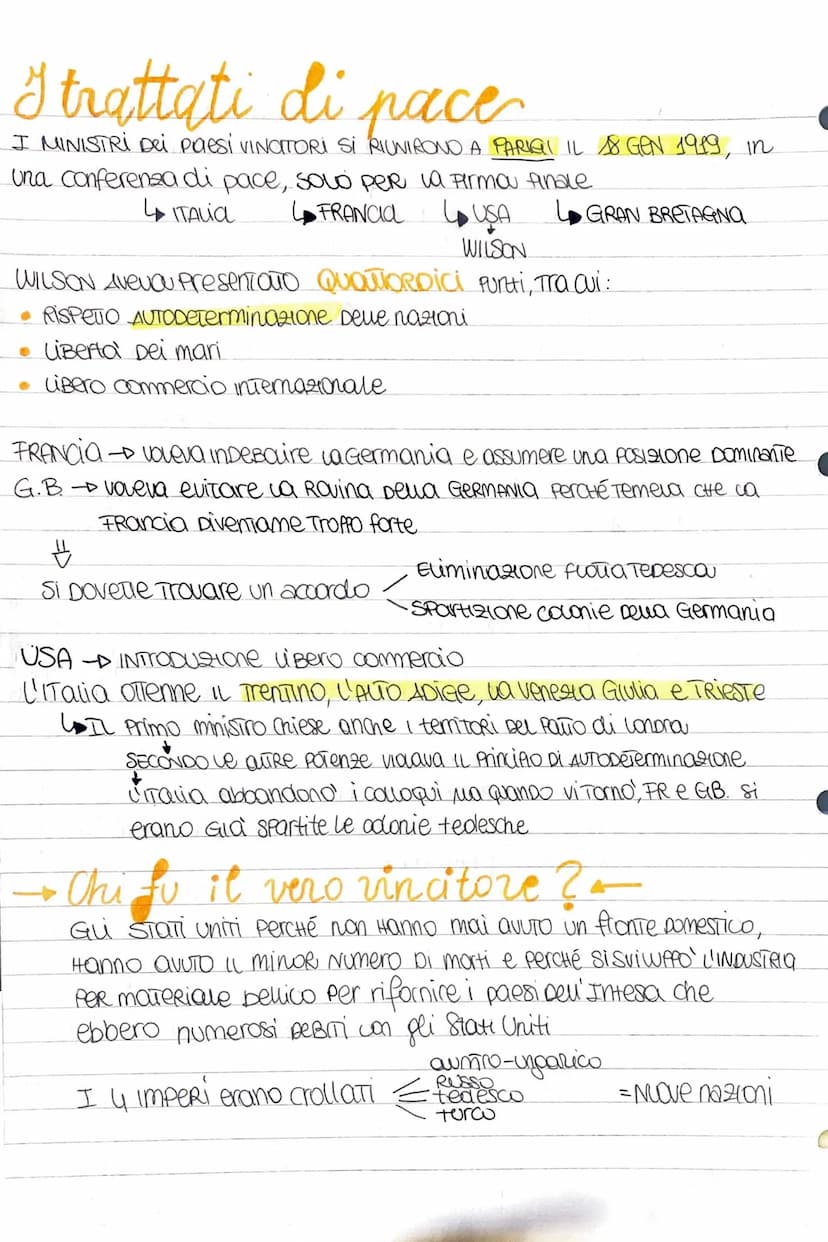 I trattati di pace
I MINISTRI DEI PAESI VINCITORI SI RIUNIRONO A PARIGI IL 18 GEN 1919, IN
una conferenza di pace, SOLO PER LA FIRMA FINALE
↳ ITALIA ↳ FRANCIA ↳ USA ↳ GRAN BRETAGNA
WILSON
WILSON AVEVA PRESENTATO QUATTORDICI PUNTI, TRA CUI:
• RISPETTO AUTODETERMINAZIONE DELLE NAZIONI
• LIBERTÀ DEI MARI
• LIBERO COMMERCIO INTERNAZIONALE
FRANCIA → VOLEVA INDEBOLIRE LA GERMANIA E ASSUMERE UNA POSIZIONE DOMINANTE
G.B. → VOLEVA EVITARE LA ROVINA DELLA GERMANIA PERCHÉ TEMEVA CHE LA
FRANCIA DIVENTAME TROPPO FORTE
⇓
SI DOVETTE TROVARE UN ACCORDO ELIMINAZIONE FLOTTA TEDESCA
SPARTIZIONE COLONIE DELLA GERMANIA
USA → INTRODUZIONE LIBERO COMMERCIO
L'ITALIA OTTENNE IL TRENTINO, L'ALTO ADIGE, LA VENEZIA GIULIA E TRIESTE
↳ IL PRIMO MINISTRO CHIESE ANCHE I TERRITORI DEL PATTO DI LONDRA
SECONDO LE ALTRE POTENZE VIOLAVA IL PRINCIPIO DI AUTODETERMINAZIONE
L'ITALIA ABBANDONÒ I COLLOQUI MA QUANDO VI TORNÒ, FR E G.B. SI
ERANO GIÀ SPARTITE LE COLONIE TEDESCHE
→ Chi fu il vero vincitore? ←
GLI STATI UNITI PERCHÉ NON HANNO MAI AVUTO UN FRONTE DOMESTICO,
HANNO AVUTO IL MINOR NUMERO DI MORTI E PERCHÉ SI SVILUPPÒ L'INDUSTRIA
PER MATERIALE BELLICO PER RIFORNIRE I PAESI DELL'INTESA CHE
EBBERO NUMEROSI DEBITI CON GLI STATI UNITI
AUSTRO-UNGARICO
I 4 IMPERI ERANO CROLLATI RUSSO
TEDESCO = NUOVE NAZIONI
TURCO